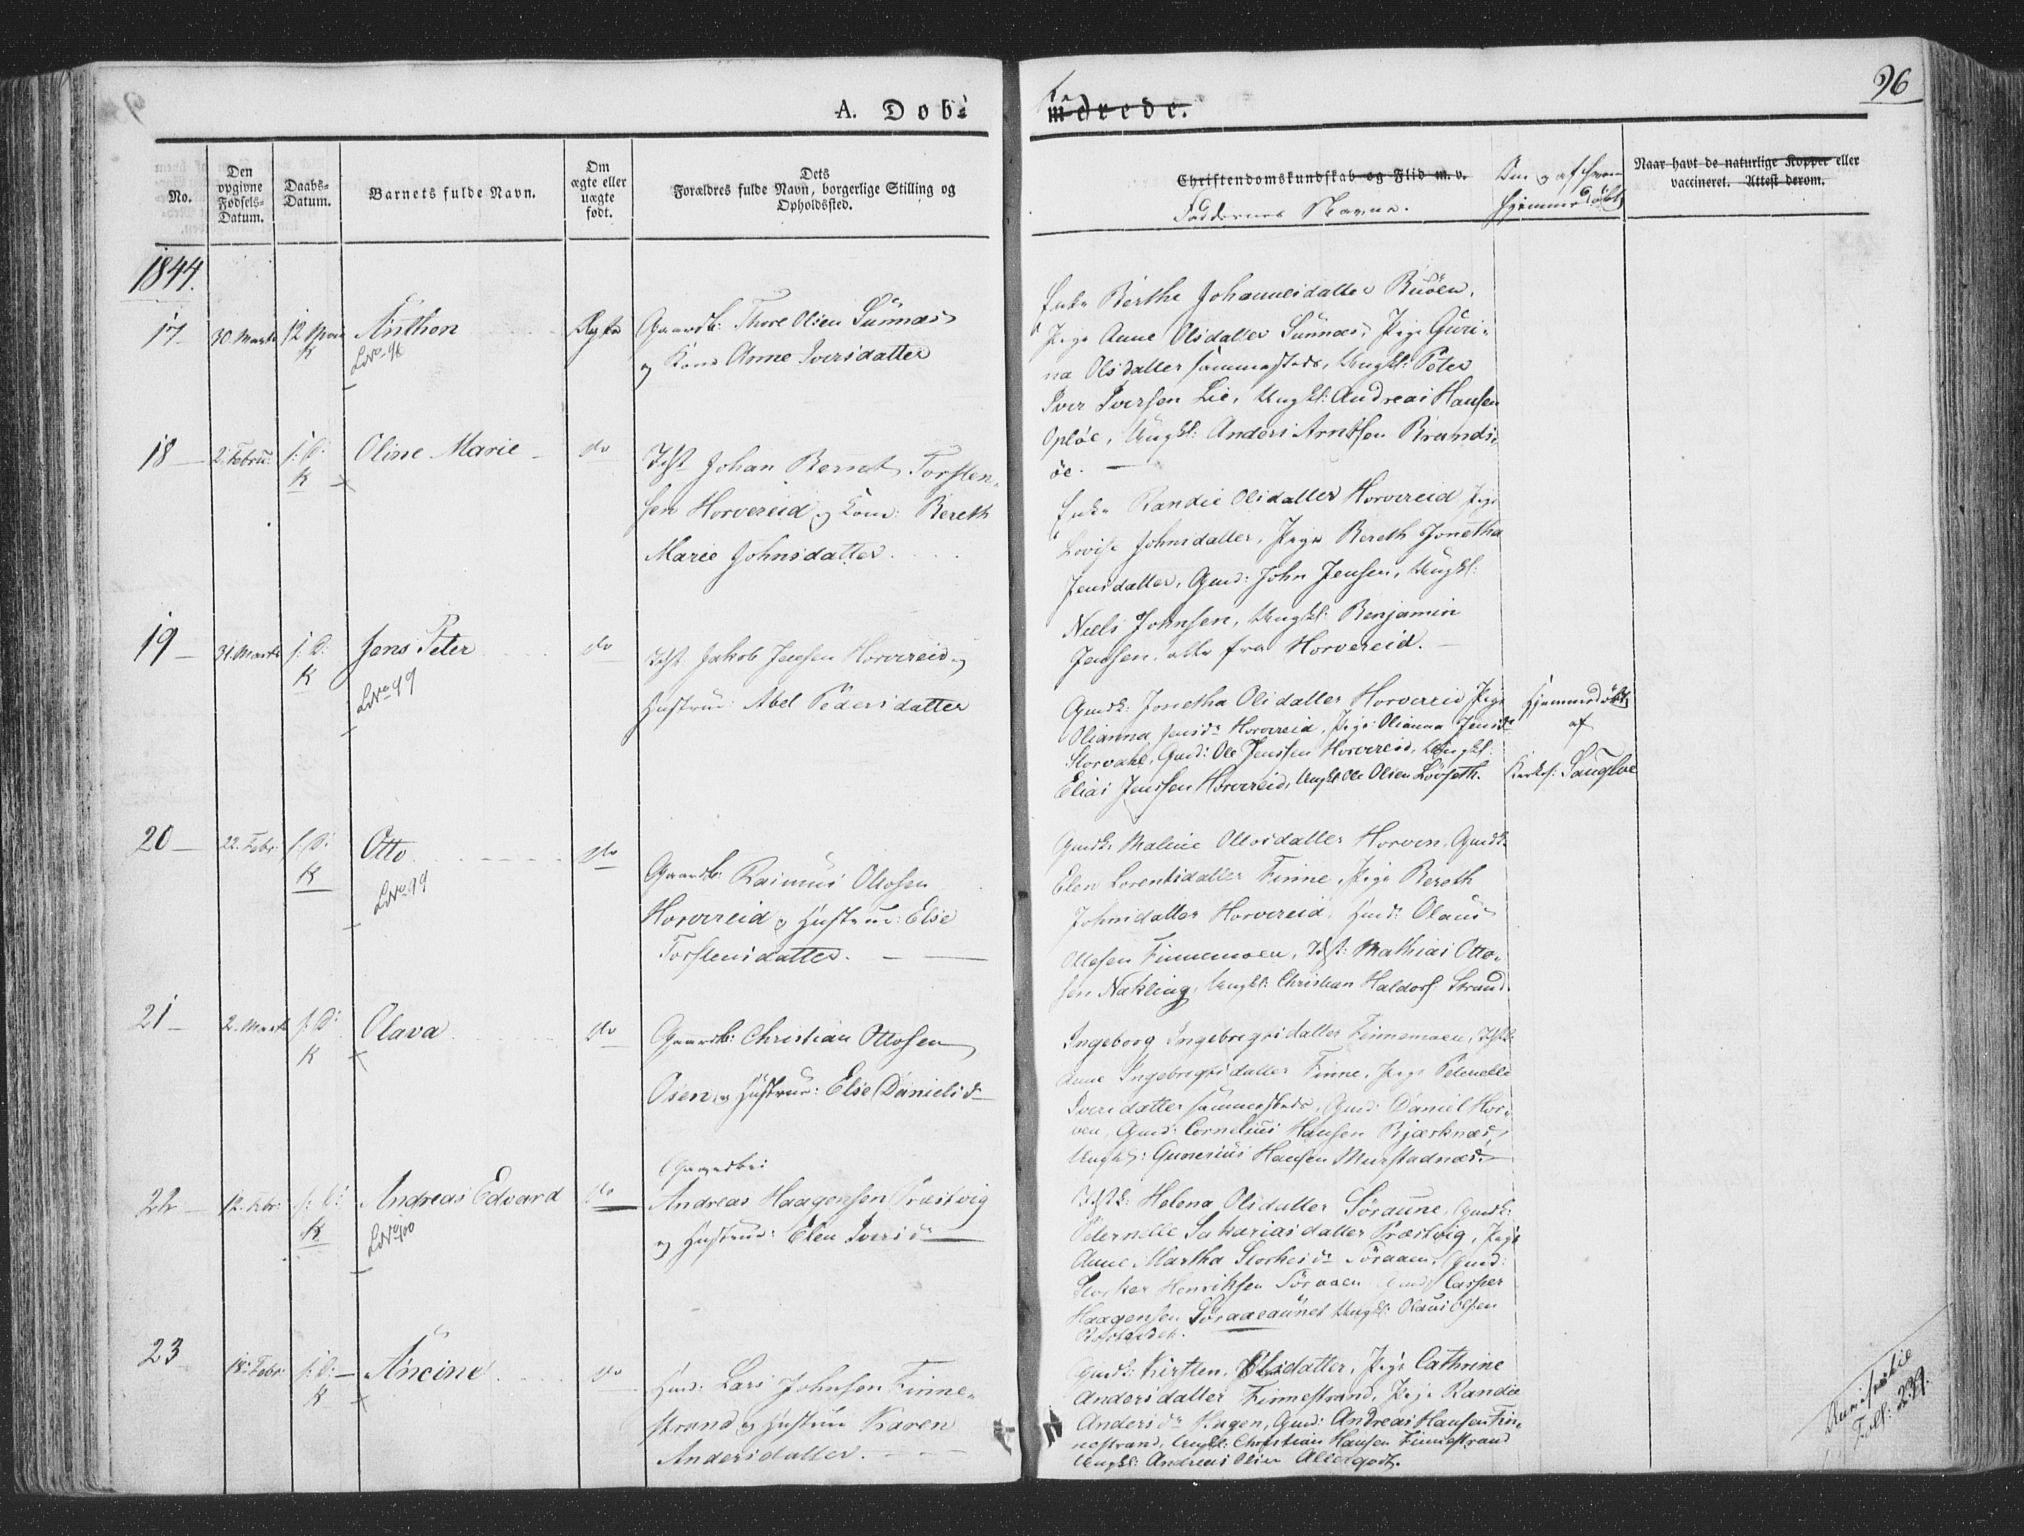 96
A. Døb-
mdrede.
No.
Den opgivne Fødsels-Datum.
Daabs-Datum.
Barnets fulde Navn.
Om ægte eller uægte født.
Dets Forældres fulde Navn, borgerlige Stilling og Opholdssted.
Christendomskundskab og Flid m. v.
Faddernes Navne.
Om og af hvem hjemmedøbt
Naar havt de naturlige Kopper eller vaccineret. Attest derom.
1844.
17 30. Marts 12 K Anthon Ægte Gaardb: Thore Olsen Sünnæs
LNo 96
og Kone Anne Iversdatter
Enke Berthe Johannesdatter Buöen,
Pige Anne Olsdatter Sünnæs, Pige Guri-
na Olsdatter sammesteds, Ungk: Peter
Iver Iversen Lie, Ungk: Andreas Hansen
Opløe, Ungk: Anders Arntsen Brands-
øe.
18 2. Febru: s: D: K Oline Marie do Idst Johan Bernt Torsten-
sen Horvereid og Kone: Bereth
Marie Johnsdatter.
Enke Randie Olsdatter Horvereid Pige
Lovise Johnsdatter, Pige Bereth Jonetha
Jensdatter, Gmd: John Jensen, Ungk:
Niels Johnsen, Ungk: Benjamin
Jensen, alle fra Horvereid.
19 31. Marts s: D: K Jens Peter do Idst Jakob Jensen Horvereid og
LNo 99
Hustrue: Abel Pedersdatter
Gmdk: Jonetha Olsdatter Horvereid Pige
Olianna Jensdr Horvereid, Pige Olianna Jensdr
Storvahl, Gmd: Ole Jenssen Horvereid, Ungk:
Elias Jenssen Horvereid, Ungk Ole Olsen Lövseth.
Hjemmedöbt
af
Kirkes: Saugstue
20 22. Febr: s: D: K Otto do
LNo 99
Gaardb: Rasmus Olsosen
Horvereid og Hustrue: Else
Torstensdatter.
Gmdk: Malene Olsosdatter Horven, Gmdk:
Elen Lorentsdatter Finne, Pige Bereth
Johnsdatter Horvereid, Gmd: Olaus
Ottesen Finnemoen, Idst: Mathias Otto-
sen Nakling, Ungk: Christian Haldorf Strand.
21 2. Marts s: D: K Olava do Gaardb: Christian Ottosen
Osen, og Hustrue: Else Danielsd
Ingeborg Ingebregtsdatter Finnemoen, Idstk:
Anne Ingebregtsdatter Finne, Pige Petenelle
Iversdatter sammesteds, Gmd: Daniel Hor-
ven, Gmd: Cornelius Hansen Bjærknæs,
Ungk: Gunerius Hansen Murstadnæs.
22 12. Febr: s: D: K Andreas Edvard do
LNo 100
Gaardbr:
Andreas Haagensen Præstvig
og Hustrue: Elen Iversdr
Idstk: Helena Olsdatter Søraune, Gmdk:
Peternelle Sakariasdatter Præstvig, Pige
Anne Martha Storkersdr Söraaen, Gmd:
Storker Henriksen Söraaen Gmd: Casper
Haagensen Søraaeaünet Ungk: Olaus Olsen
23 18. Febr: s: D: K Ancine do Gmd: Lars Johnsen Finne-
strand og Hustrue Karen
Andersdatter.
Gmdk: Kirsten Olsdatter, Pige Cathrine
Andersdatter Finnestrand, Pige Randie
Andersdr Hagen, Gmd: Andreas Hansen Fin-
nestrand, Ungk: Christian Hansen Finnestrand
Ungk: Andreas Olsen
Foll: 239.